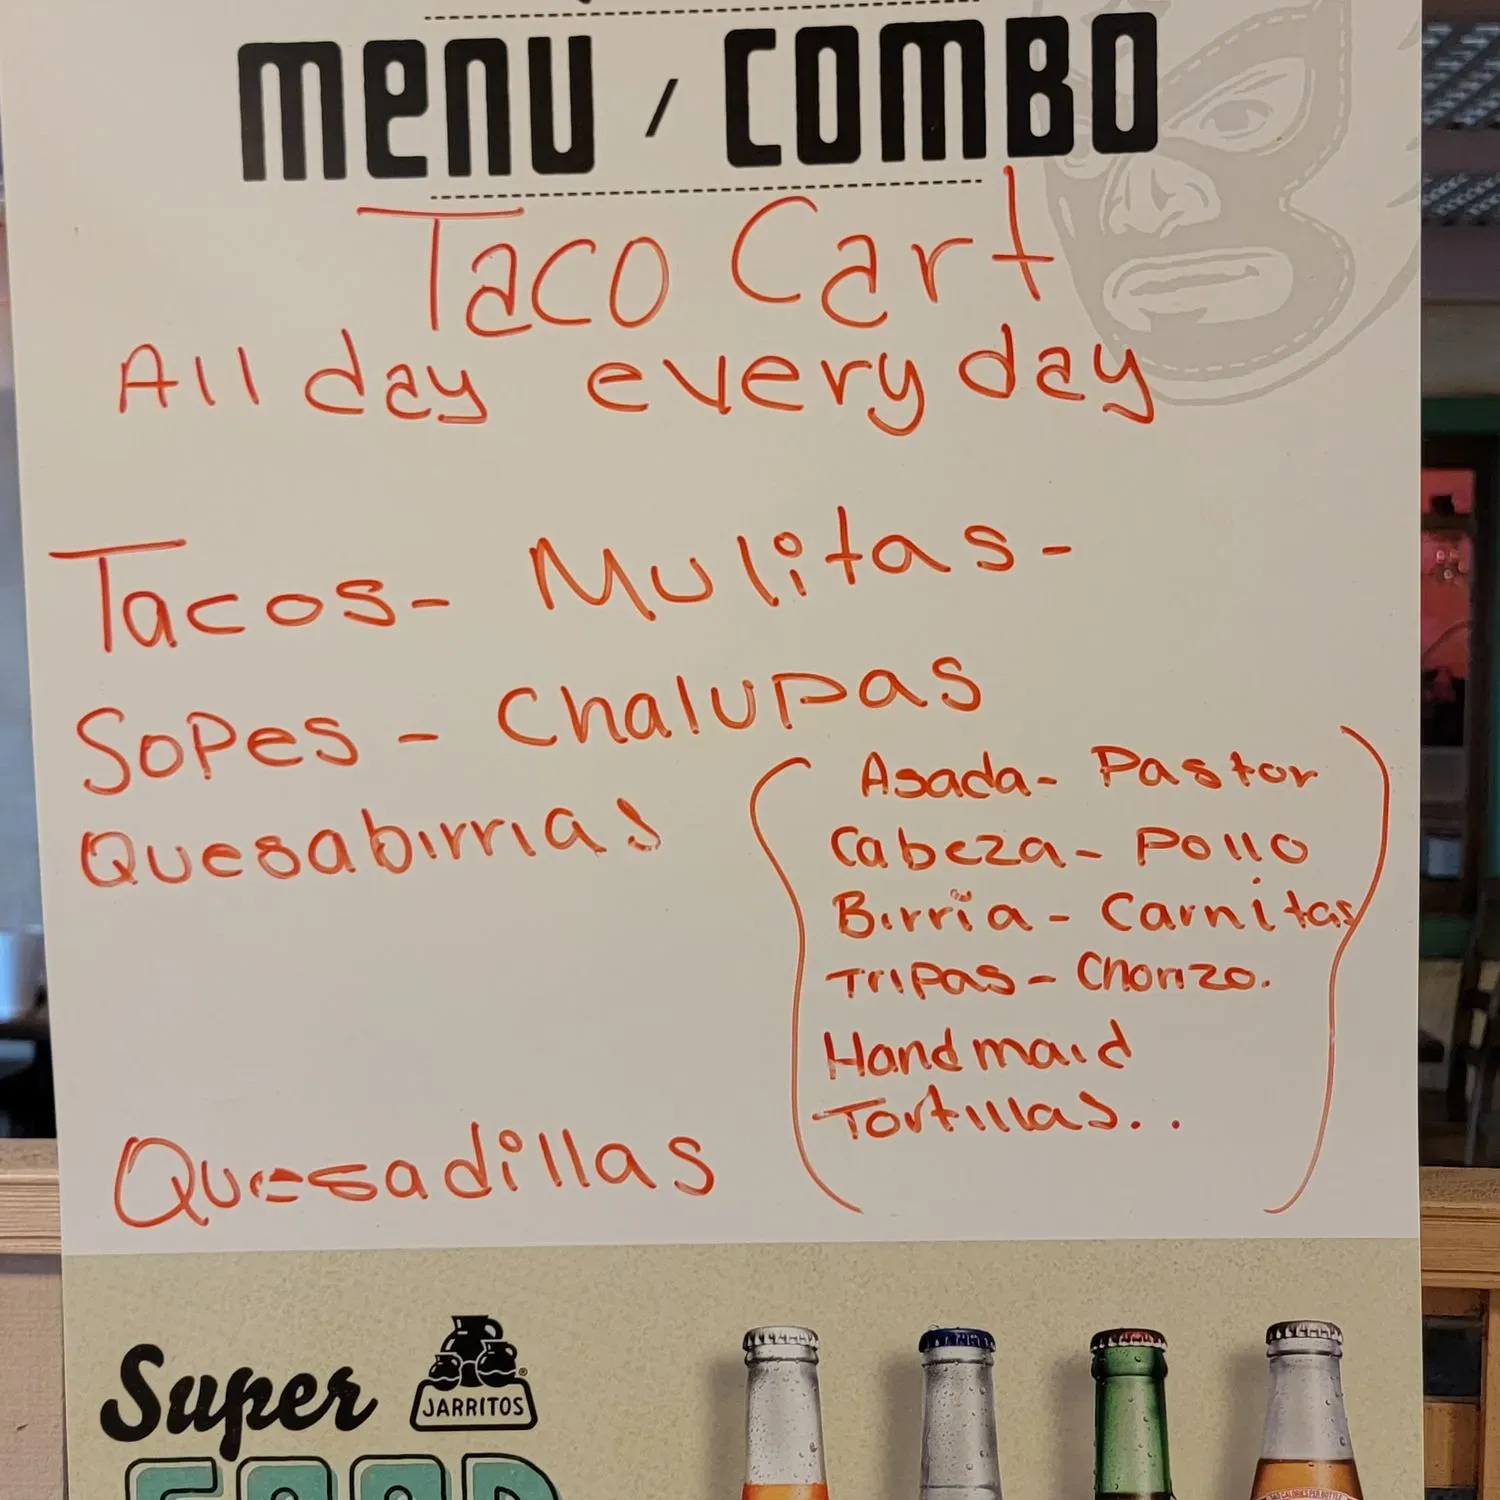 MENU / COMBO
Taco Cart
All day every day
Tacos- Mulitas-
Sopes - Chalupas
Quesabirrias
Asada- Pastor
Cabeza- Pollo
Birria - Carnitas
Tripas- Chorizo.
Handmaid
Tortillas..
Quesadillas
Super
JARRITOS
FOOD